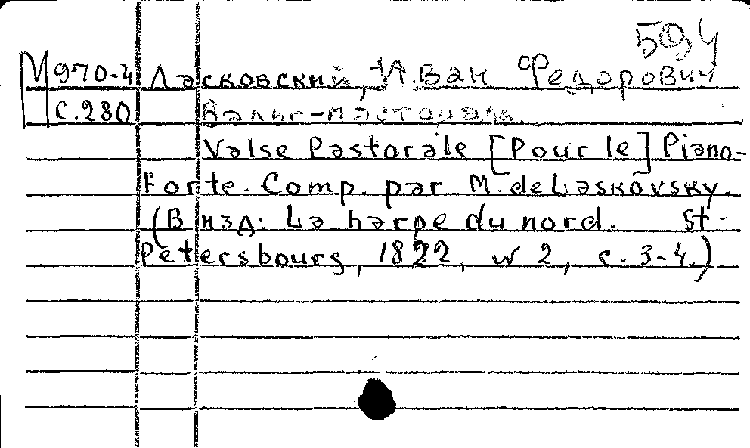 594
М 970-4 Ласковский, Иван Федорович
с.280 Вальс-пастораль.
Valse Pastorale [Pour le] Piano-
Forte. Comp. par M. de Laskovsky.
(В изд: La harpe du nord. St-
Petersbourg, 1822, № 2, с. 3-4.)